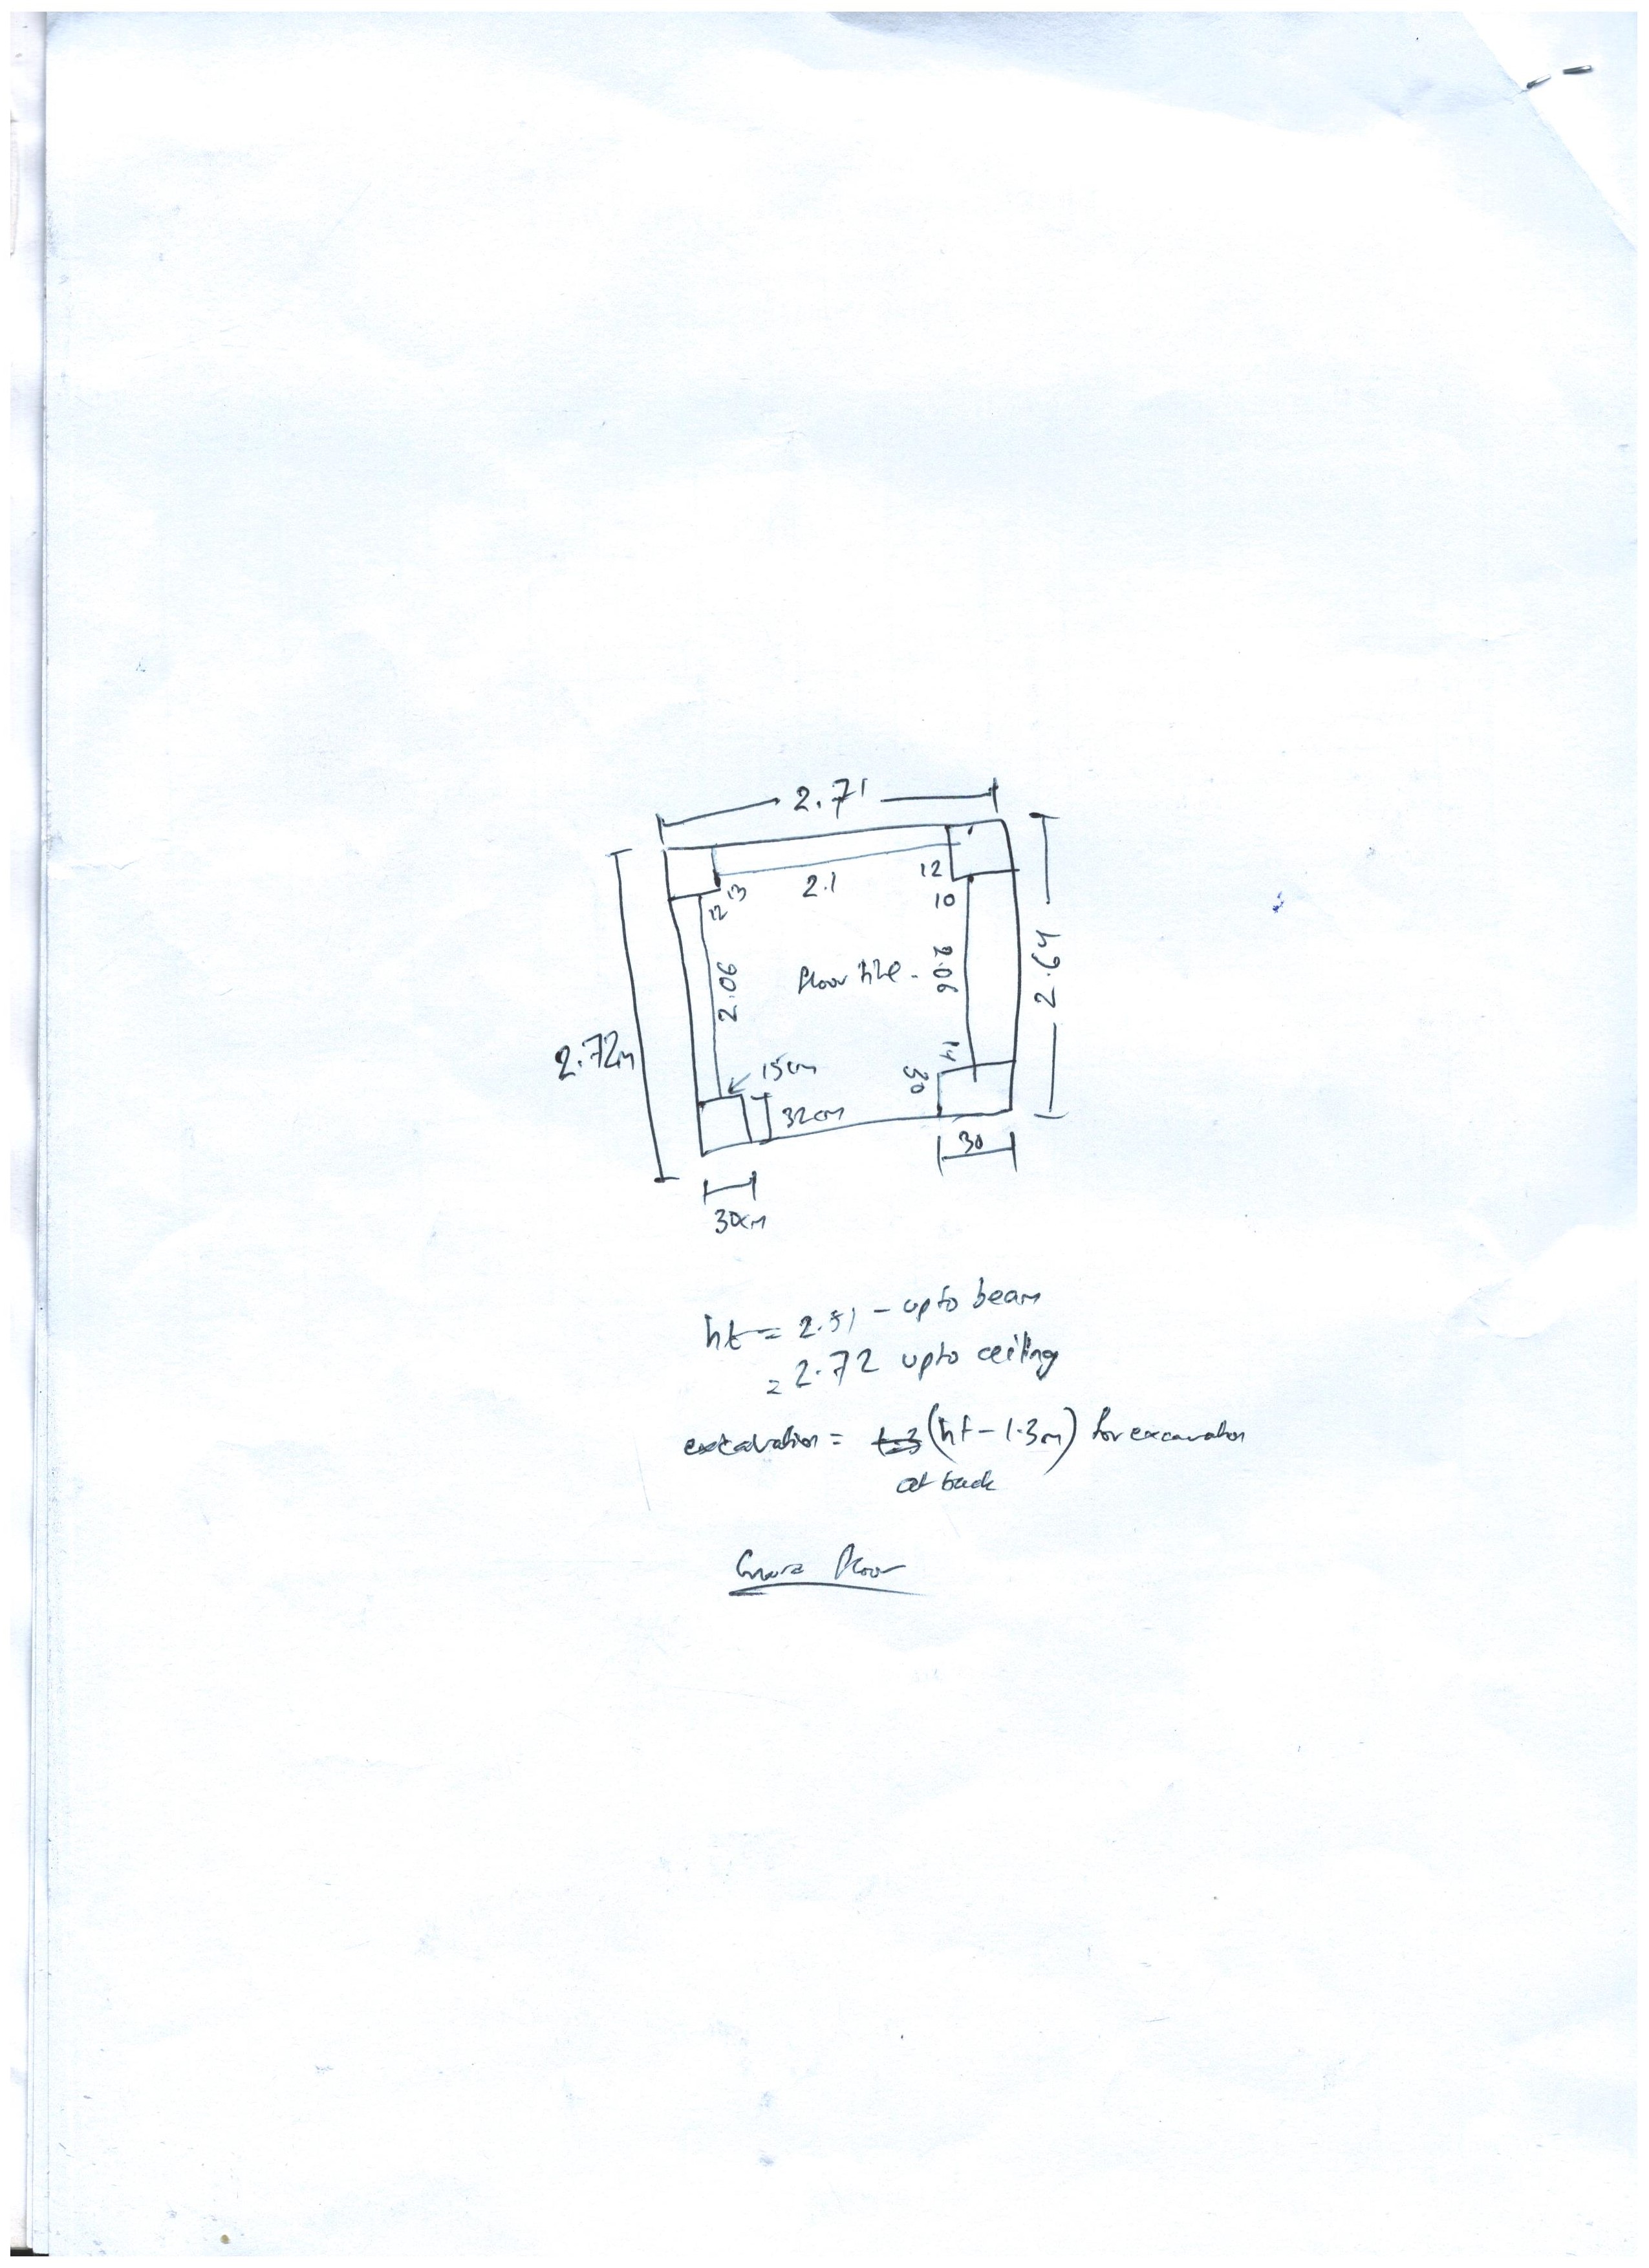 2.71
12
13
2.1
12
10
2.06
floor tile -
2.06
2.64
2.72m
15cm
14
30
32cm
30
30cm
ht = 2.51 - upto beam
= 2.72 upto ceiling
excavation = (ht - 1.3m) for excavation
at back
floor